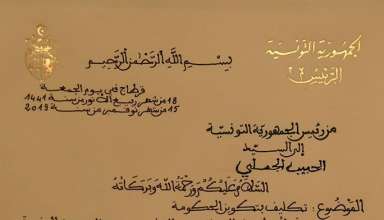 الجمهورية التونسية
الرئيس
بسم الله الرحمن الرحيم
قرطاج في يوم الجمعة
18 من شهر ربيع الأول من سنة 1441
15 من شهر نوفمبر من سنة 2019
من رئيس الجمهورية التونسية
إلى السيد
الحبيب الجملي
السلام عليكم ورحمة الله وبركاته
الموضوع : تكليف بتكوين الحكومة